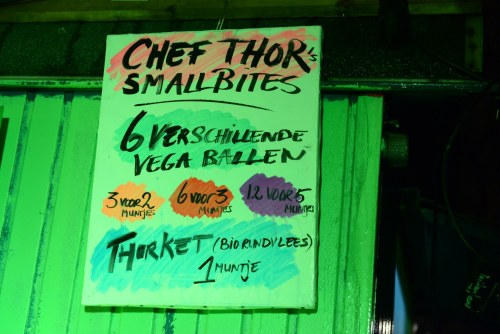 CHEF THOR's
SMALL BITES
6 VERSCHILLENDE
VEGA BALLEN
3 VOOR 2
MUNTJES
6 VOOR 3
MUNTJES
12 VOOR 5
MUNTJES
THORKET (BIO RINDVLEES)
1 MUNTJE